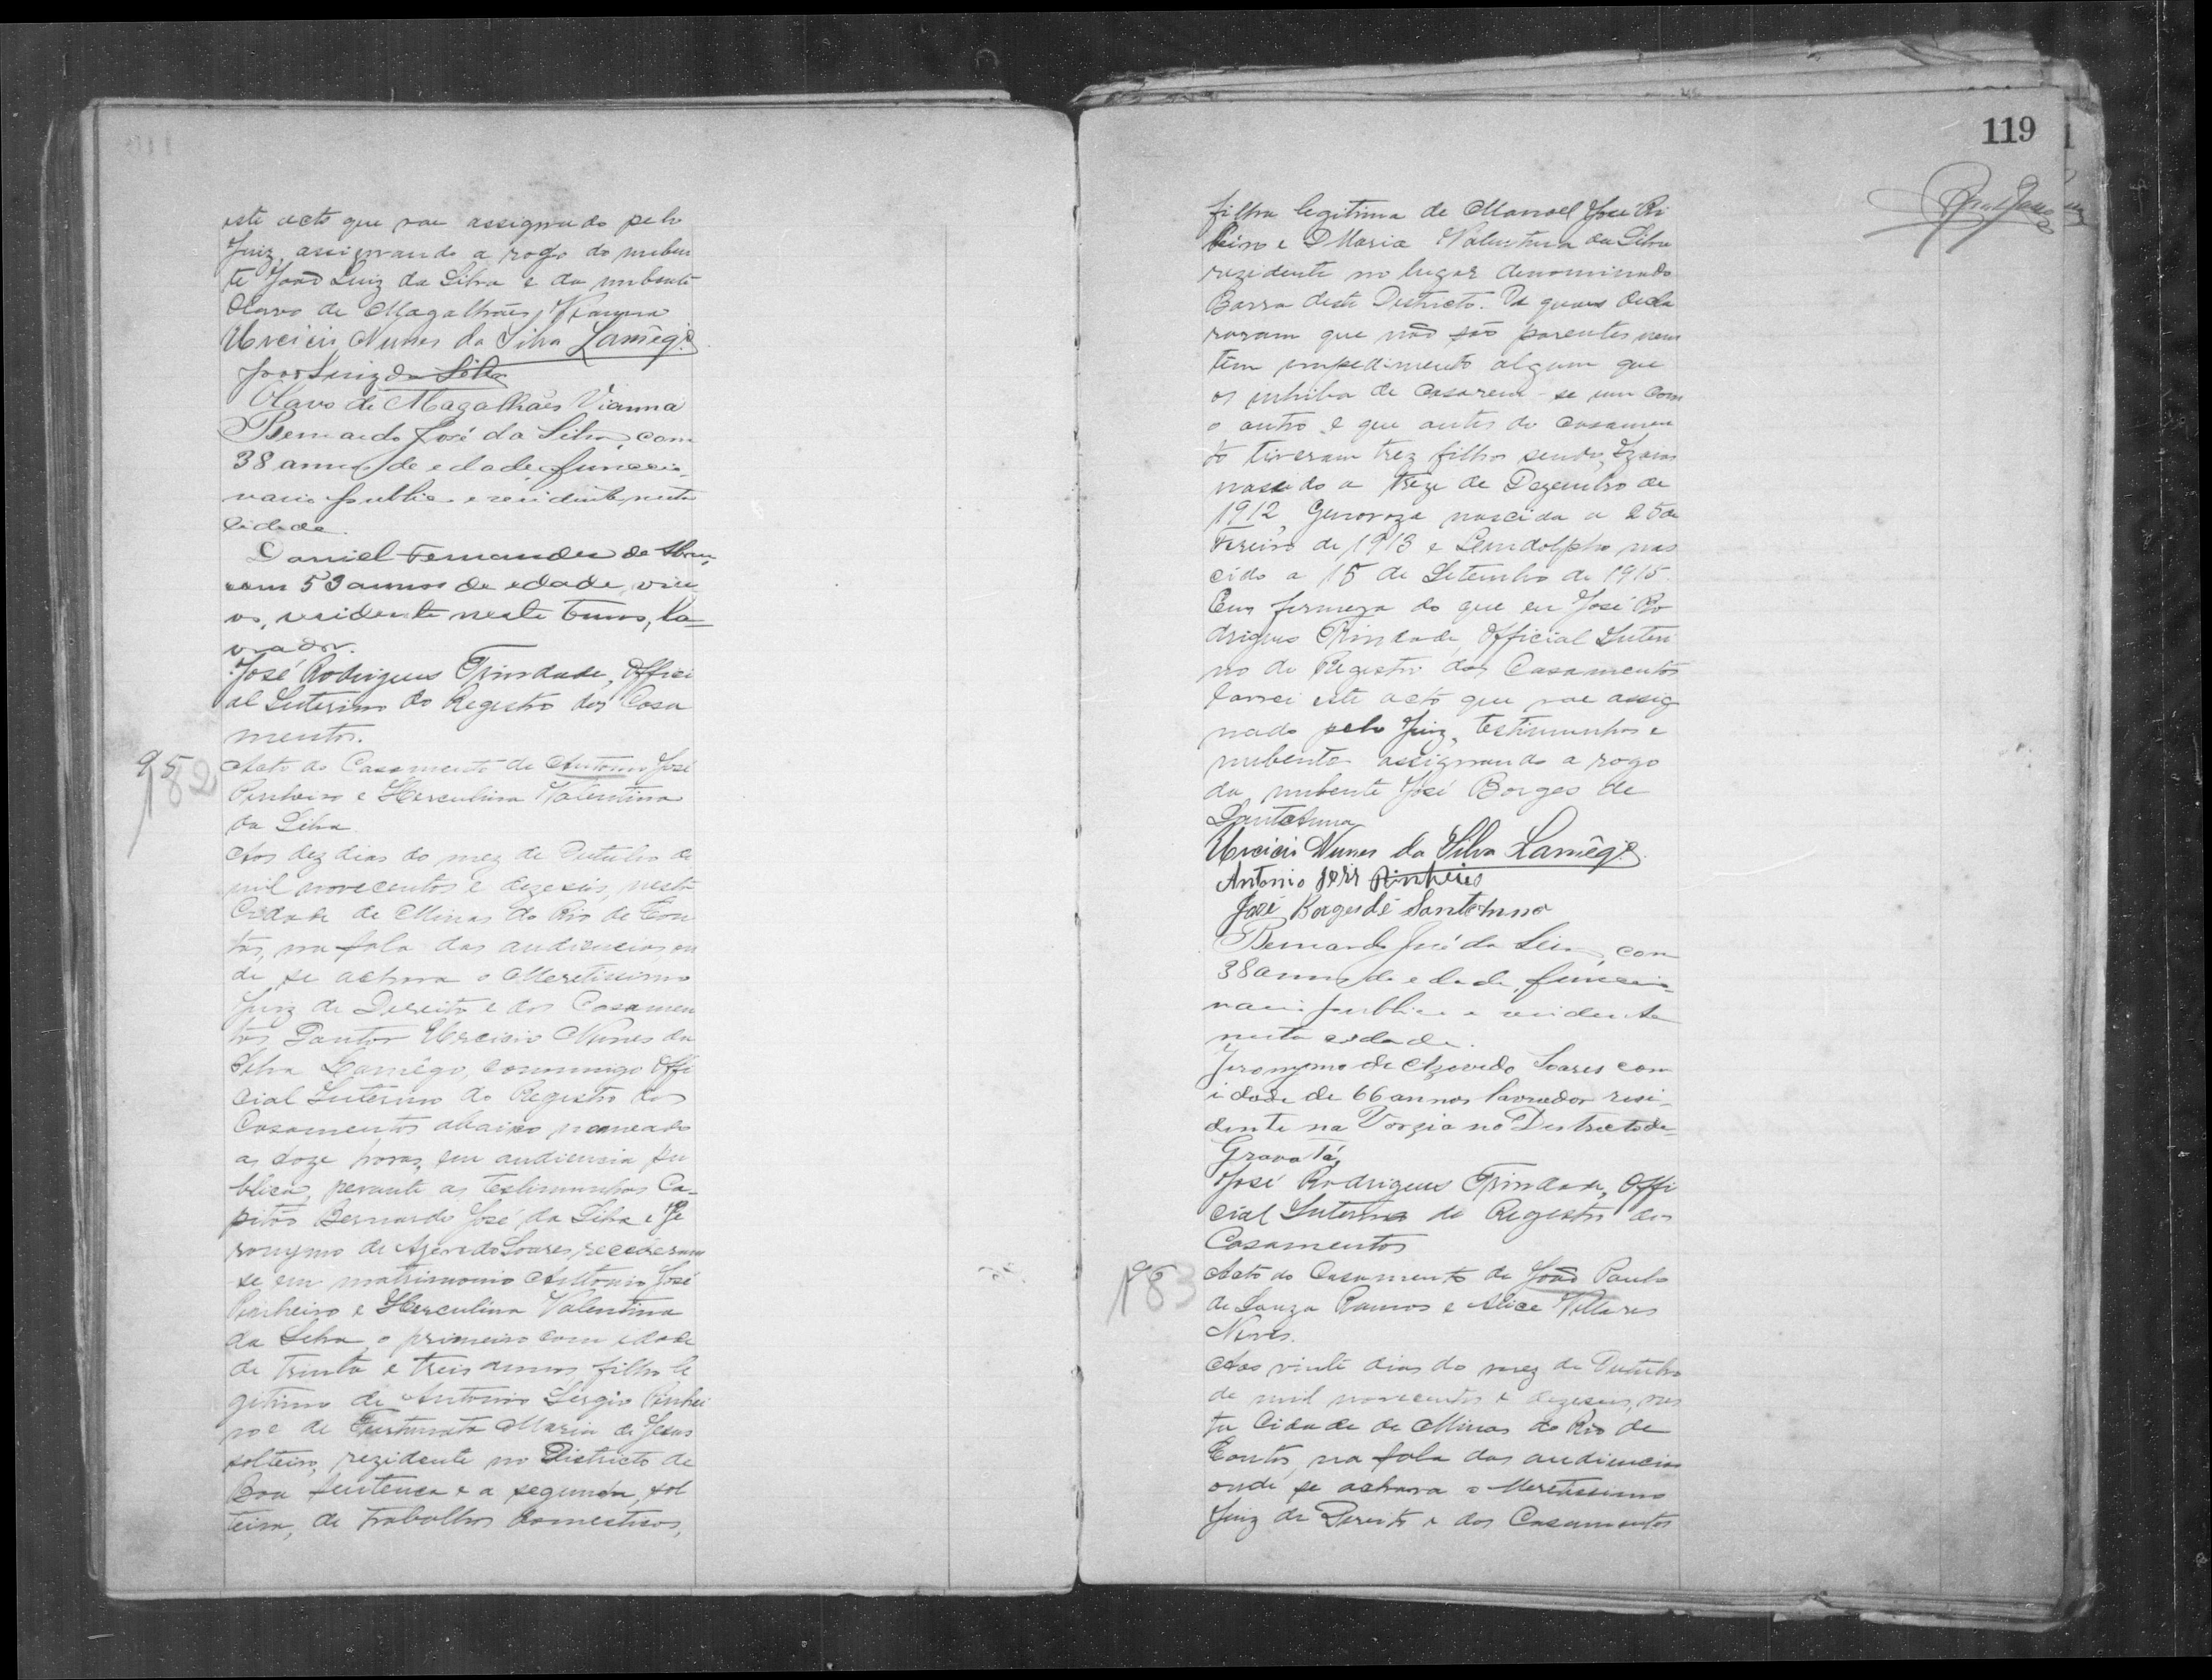 este acto que vae assignado pelo
Juiz, assignando a rogo do nuben
te João Luiz da Silva e da nubente
Olavo de Magalhães Vianna
Urcicio Nunes da Silva Lamêgo
João Luiz da Silva
Olavo de Magalhães Vianna
Bernardo José da Silva, com
38 annos de edade, funccio-
nario publico e residente nesta
cidade.
Daniel Fernandes de Abreu,
com 53 annos de edade, viu
vo, residente neste termo, la-
vrador.
José Rodrigues Trindade, Offici
al Interino do Registro dos Casa
mentos.
95
182
Acto do Casamento de Antonio José
Pinheiro e Herculina Valentina
da Silva.
Aos dez dias do mez de Outubro de
mil novecentos e dezeseis, nesta
Cidade de Minas do Rio de Con
tas, na sala das audiencias, on
de se achava o Meretissimo
Juiz de Direito e dos Casamen
tos, Doutor Urcicio Nunes da
Silva Lamêgo, commigo Offi
cial Interino do Registro dos
Casamentos abaixo nomeado
as doze horas, em audiencia pu
blica, perante as testimunhas Ca-
pitão Bernardo José da Silva e Je
ronymo de Azevedo Soares, receberam
se em matrimonio Antonio José
Pinheiro e Herculina Valentina
da Silva, o primeiro com idade
de trinta e treis annos, filho le
gitimo de Antonio Sergio Pinhei
ro e de Fortunata Maria de Jesus
solteiro, rezidente no Districto de
Boa Sentença e a segunda, sol
teira, de trabalhos domesticos,
119
filha legitima de Manoel José Ri
beiro e Maria Valentina da Silva
rezidente no lugar denominado
Barra deste Districto. Os quaes decla
raram que não são parentes nem
têm impedimento algum que
os inhiba de casarem-se um com
o outro e que antes do casamen
to tiveram trez filhos sendo,
nascido a treze de Dezembro de
1912, Generoza nascida a 25 de
de 1913 e Leindolpho nas
cido a 15 de Setembro de 1915.
Em firmeza do que eu José Ro
drigues Trindade, Official Interi
no do Registro dos Casamentos
lavrei este acto que vae assig
nado pelo Juiz, testimunhas e
nubente assignando a rogo
da nubente José Borges de
Santanna
Urcicio Nunes da Silva Lamêgo.
Antonio José Pinheiro
José Borges de Santanna
Bernardo José da Silva, com
38 annos de edade, funccio-
nario publico e residente
nesta cidade.
Jeronymo de Azevedo Soares com
idade de 66 annos lavrador resi-
dente na Varzia no Districto de
Gravatá,
José Rodrigues Trindade, Offi
cial Interino do Registro dos
Casamentos
96
183
Acto do Casamento de João Paulo
de Souza Ramos e Alice Villares
Neves.
Aos vinte dias do mez de Outubro
de mil novecentos e dezeseis, nes
ta Cidade de Minas do Rio de
Contas, na sala das audiencias
onde se achava o Meretissimo
Juiz de Direito e dos Casamentos